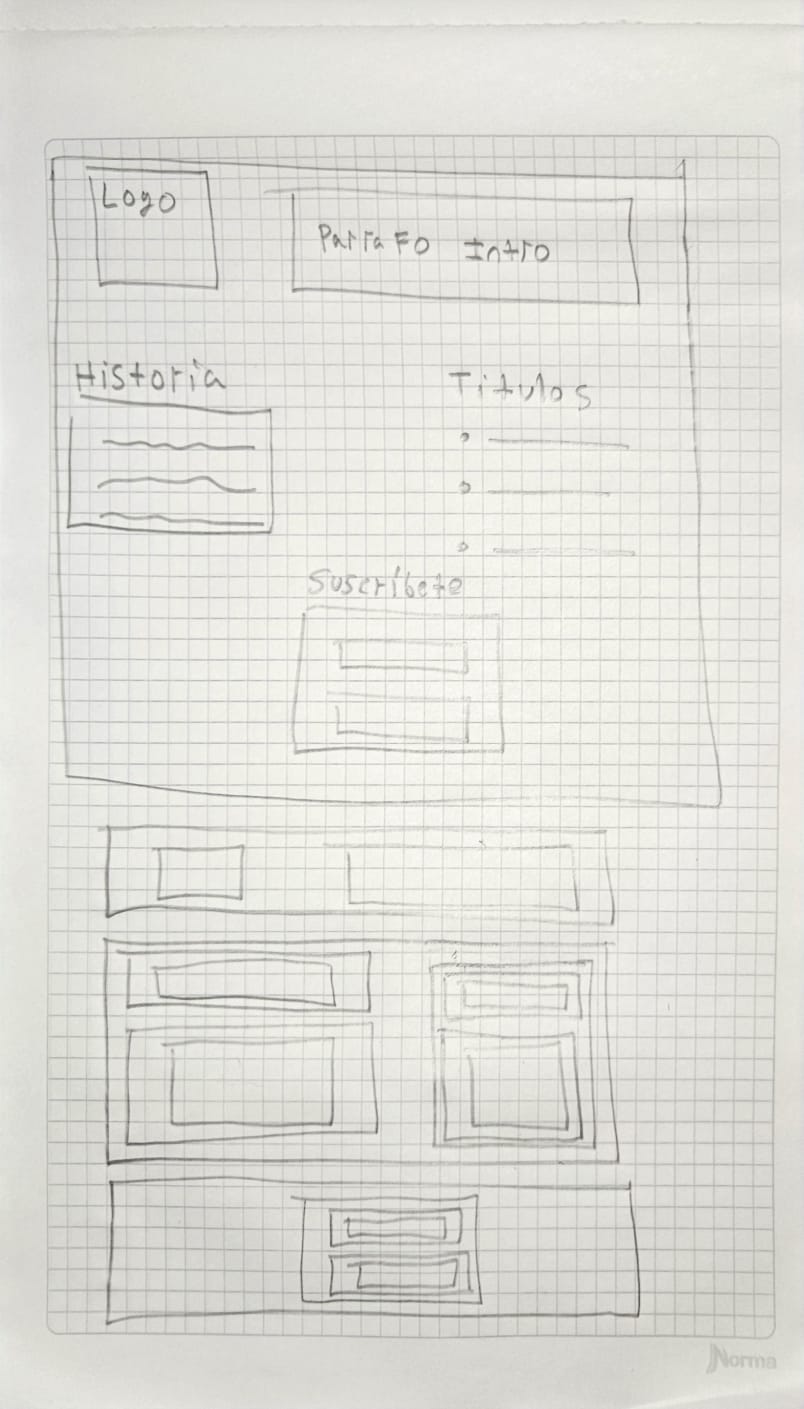 Logo
Parrafo Intro
Historia
Titulos
Suscríbete
Norma